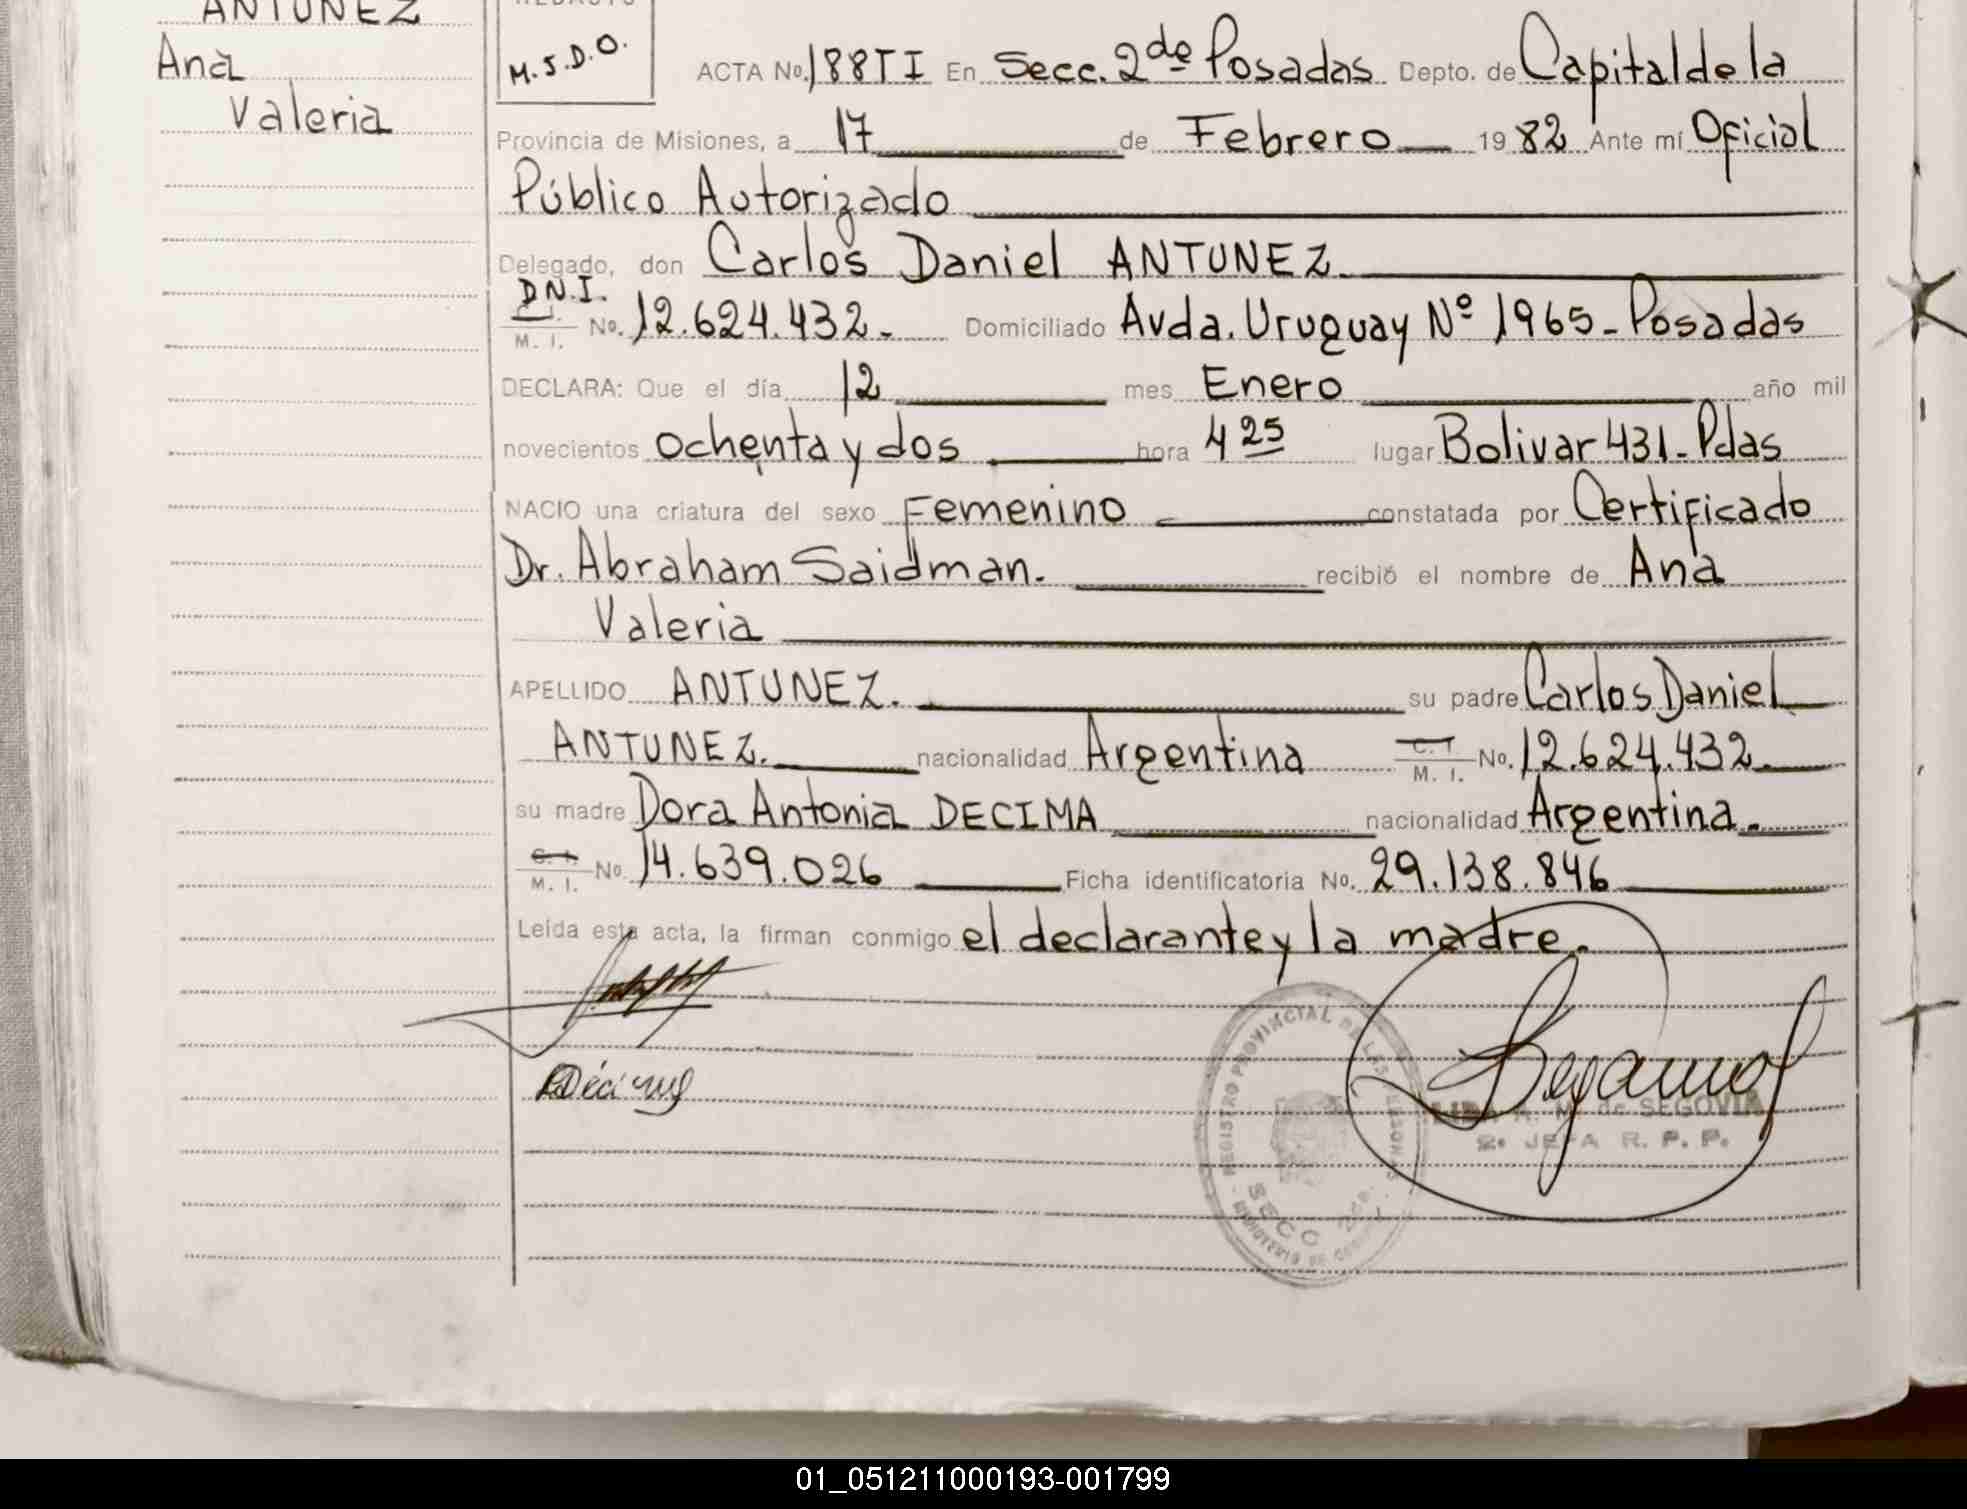 ANTUNEZ
Ana
Valeria
M.S.D.O.
ACTA No. 188TI En Secc. 2de Posadas Depto. de Capital de la
Provincia de Misiones, a 17 de Febrero 1982 Ante mí Oficial
Público Autorizado
Delegado, don Carlos Daniel ANTUNEZ
D.N.I.
M. I. No. 12.624.432. Domiciliado Avda. Uruguay Nº 1965 - Posadas
DECLARA: Que el día 12 mes Enero año mil
novecientos ochenta y dos hora 4 25 lugar Bolivar 431 - Pdas
NACIO una criatura del sexo Femenino constatada por Certificado
Dr. Abraham Saidman. recibió el nombre de Ana
Valeria
APELLIDO ANTUNEZ. su padre Carlos Daniel
ANTUNEZ. nacionalidad Argentina C. I. M. I. No. 12.624.432
su madre Dora Antonia DECIMA nacionalidad Argentina.
C. I. M. I. No. 14.639.026 Ficha identificatoria No. 29.138.846
Leída esta acta, la firman conmigo el declarante y la madre.
REGISTRO PROVINCIAL DE LAS PERSONAS
SECC 2da.
de SEGOVIA
2ª JEFA R. P. P.
01_051211000193-001799